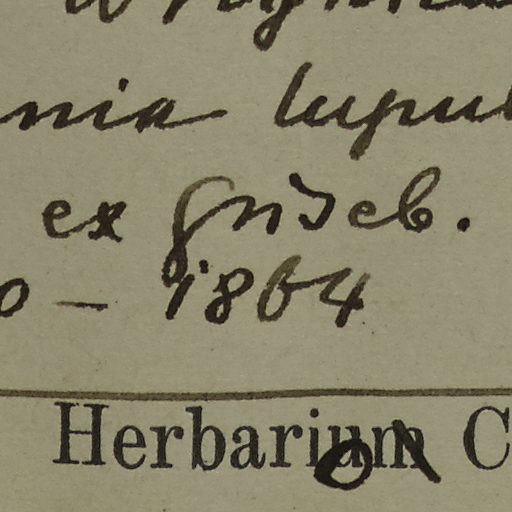 nia lupul
ex Griseb.
0 – 1864
Herbarium C